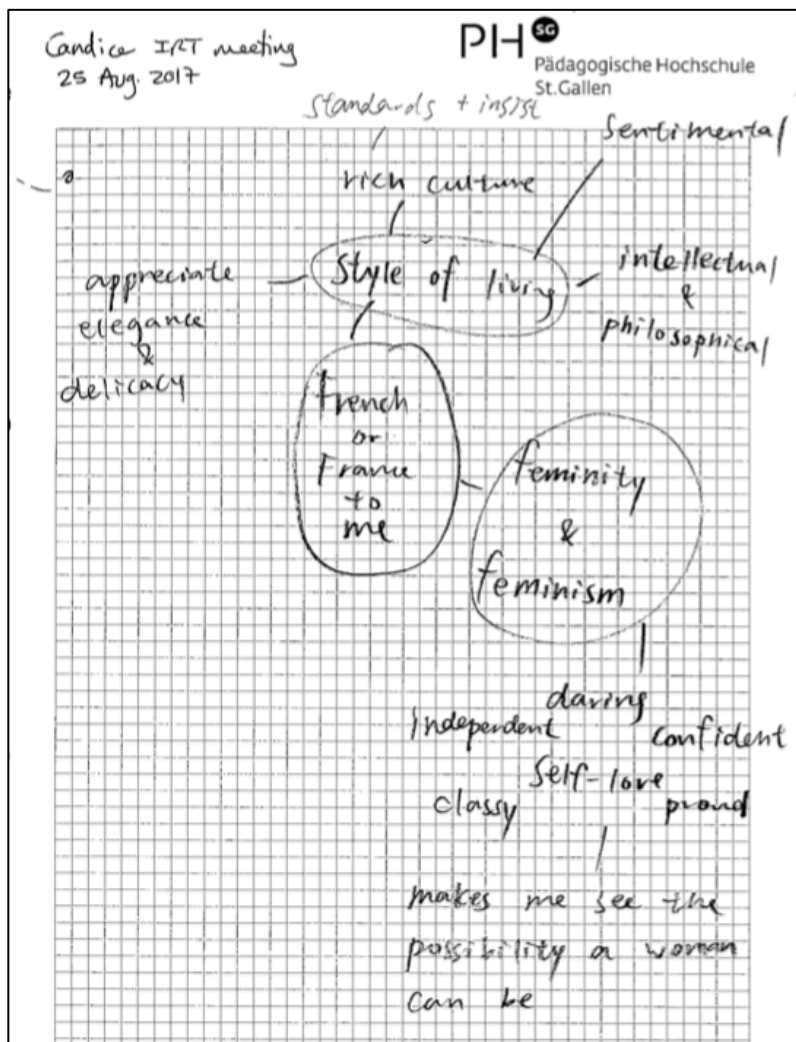 Candice IRT meeting
25 Aug. 2017
PH SG
Pädagogische Hochschule
St.Gallen
standards + insist
sentimental
rich culture
style of living
appreciate
elegance
&
delicacy
intellectual
&
philosophical
French
or
France
to
me
feminity
&
feminism
daring
independent
confident
self-love
classy
proud
makes me see the
possibility a woman
can be